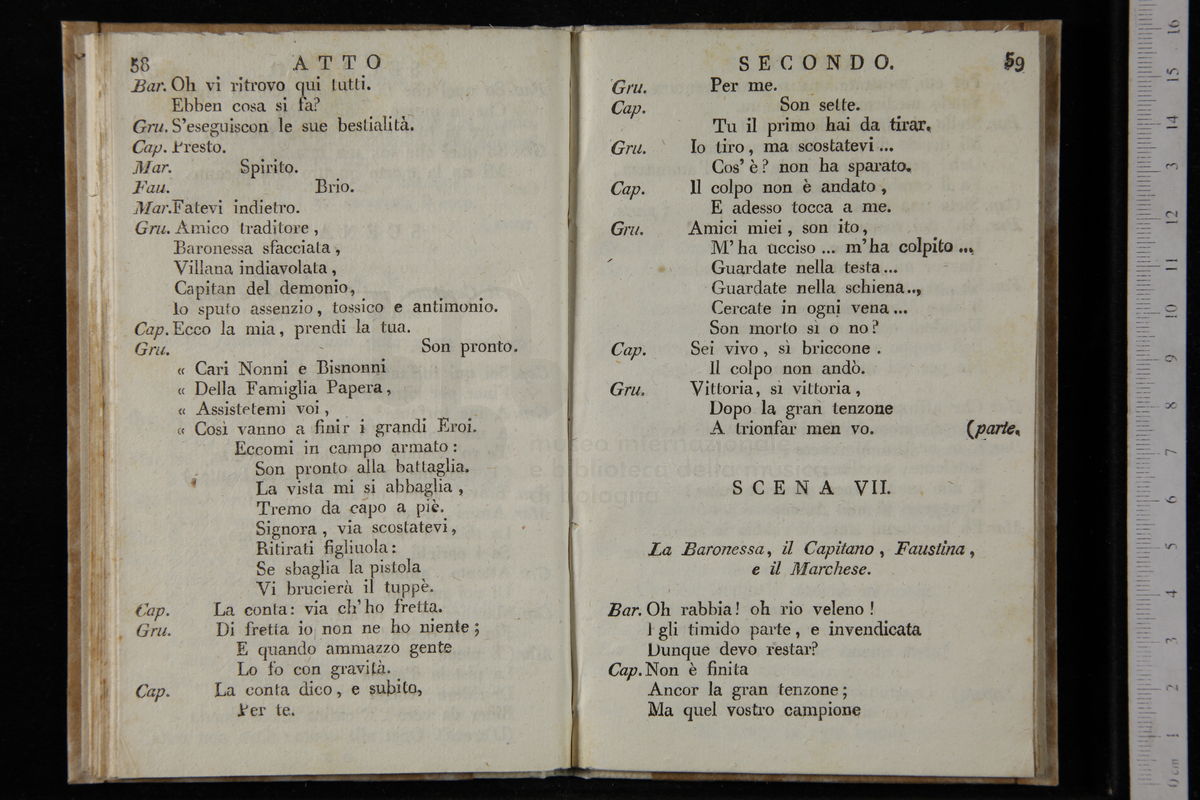 58 ATTO
Bar. Oh vi ritrovo qui tutti.
Ebben cosa si fa?
Gru. S'eseguiscon le sue bestialità.
Cap. Presto.
Mar. Spirito.
Fau. Brio.
Mar. Fatevi indietro.
Gru. Amico traditore,
Baronessa sfacciata,
Villana indiavolata,
Capitan del demonio,
Io sputo assenzio, tossico e antimonio.
Cap. Ecco la mia, prendi la tua.
Gru. Son pronto.
« Cari Nonni e Bisnonni
« Della Famiglia Papera,
« Assistetemi voi,
« Così vanno a finir i grandi Eroi.
Eccomi in campo armato:
Son pronto alla battaglia.
La vista mi si abbaglia,
Tremo da capo a piè.
Signora, via scostatevi,
Ritirati figliuola:
Se sbaglia la pistola
Vi brucierà il tuppè.
Cap. La conta: via ch'ho fretta.
Gru. Di fretta io non ne ho niente;
E quando ammazzo gente
Lo fo con gravità.
Cap. La conta dico, e subito,
Per te.
SECONDO. 59
Gru. Per me.
Cap. Son sette.
Tu il primo hai da tirar.
Gru. Io tiro, ma scostatevi...
Cos'è? non ha sparato.
Cap. Il colpo non è andato,
E adesso tocca a me.
Gru. Amici miei, son ito,
M'ha ucciso... m'ha colpito...
Guardate nella testa...
Guardate nella schiena..,
Cercate in ogni vena...
Son morto sì o no?
Cap. Sei vivo, sì briccone.
Il colpo non andò.
Gru. Vittoria, sì vittoria,
Dopo la gran tenzone
A trionfar men vo. (parte.
SCENA VII.
La Baronessa, il Capitano, Faustina,
e il Marchese.
Bar. Oh rabbia! oh rio veleno!
Egli timido parte, e invendicata
Dunque devo restar?
Cap. Non è finita
Ancor la gran tenzone;
Ma quel vostro campione
museo internazionale
e biblioteca della musica
di bologna
0 cm 1 2 3 4 5 6 7 8 9 10 11 12 13 14 15 16